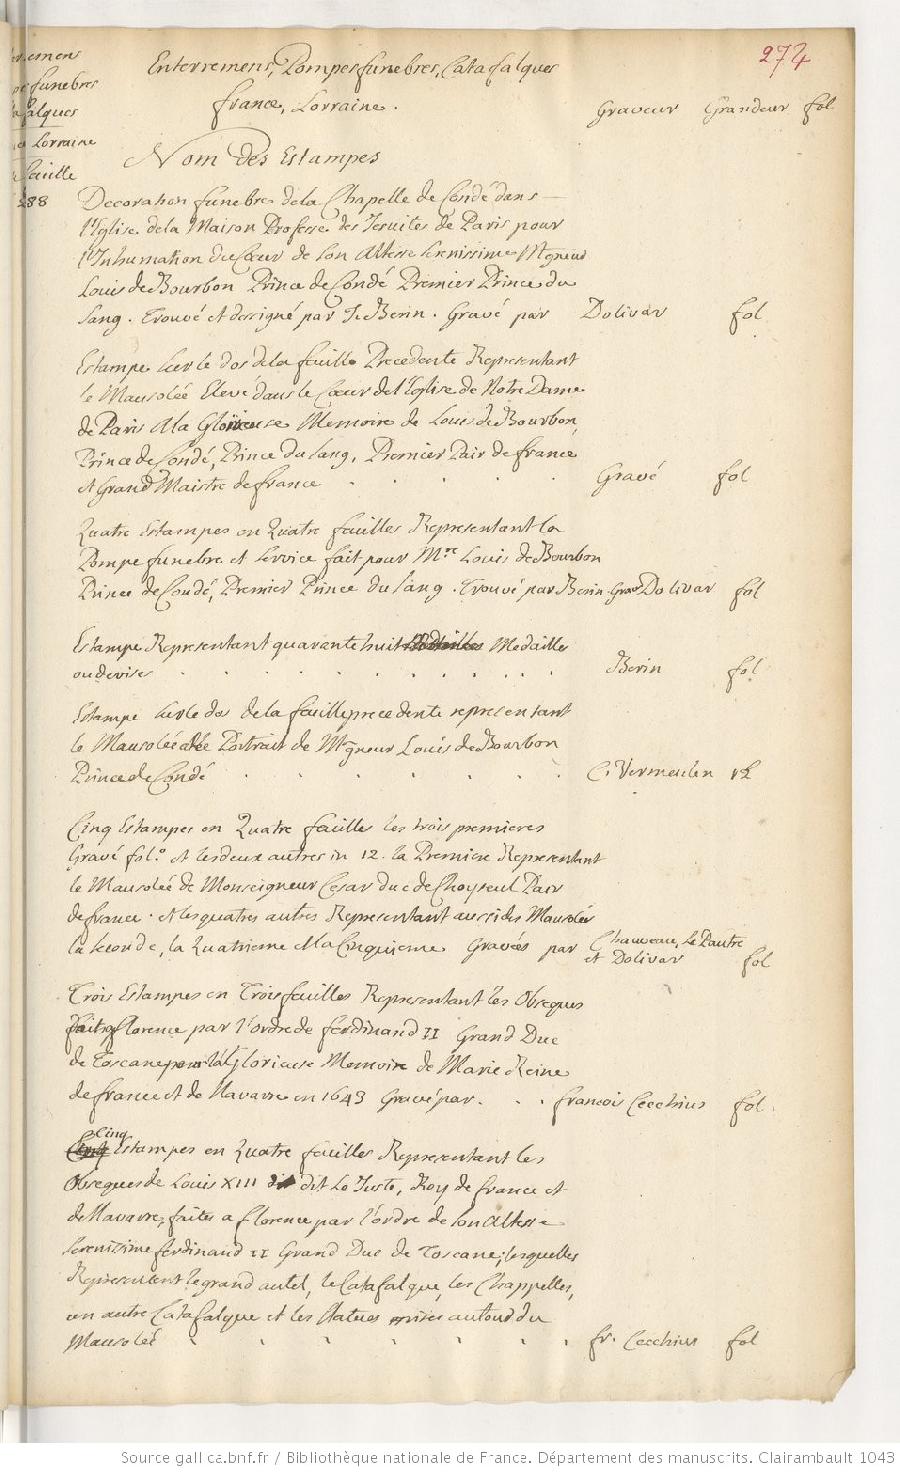 274
Enterremens, Pompes funebres, Catafalques
france, Lorraine.
Graveur Grandeur fol
Nom Des Estampes
funebres
falques
Lorraine
feuille
288
Decoration funebres de la Chapelle de Condé dans
l'Eglise de la Maison Professe des Jesuites de Paris pour
l'Inhumation du Cœur de son Altesse serenissime Mgneur
Louis de Bourbon Prince de Condé Premier Prince du
sang. Trouvé et dessigné par J. Berin. Gravé par Dolivar fol
Estampe sur le dos de la feuille Precedente Representant
le Mausolée Elevé dans le Cœur de l'Eglise de Notre Dame
de Paris A la Glorieuse Memoire de Louis de Bourbon,
Prince de Condé, Prince du sang, Premier Pair de france
et Grand Maistre de france . . . . Gravé fol
Quatre Estampes en Quatre feuilles Representant la
Pompe funebre et service fait pour Mre Louis de Bourbon
Prince de Condé, Premier Prince du sang. Trouvé par Berin Gravé Dolivar fol
Estampe Representant quarante huit Medailles
ou devises . . . . . . . . . . Berin fol
Estampe sur le dos de la feuille precedente representant
le Mausolée et le Portrait de Mgneur Louis de Bourbon
Prince de Condé . . . . . . C. Vermeulen 12
Cinq Estampes en Quatre feuilles les trois premieres
Gravé fol.o et les deux autres in 12. la Premiere Representant
le Mausolée de Monseigneur Cesar duc de Choyseul Pair
de france. et les quatres autres Representant aussi des Mausolés
la seconde, la Quatrieme et la Cinquieme Gravées par Chauveau, Le Pautre
et Dolivar fol
Trois Estampes en Trois feuilles Representant les Obseques
faites a florence par l'ordre de ferdinand II Grand Duc
de Toscane pour la Glorieuse Memoire de Marie Reine
de france et de Navarre en 1643 Gravé par . . . francois Cecchius fol.
Cinq
Estampes en Quatre feuilles Representant les
Obseques de Louis XIII dit Le Juste, Roy de france et
de Navarre, faites a florence par l'ordre de son Altesse
serenissime ferdinand II Grand Duc de Toscane, lesquelles
Representent le grand autel, le Catafalque, les Chappelles,
un autre Catafalque et les statues mises autour du
Mausolée . . . . . . . fr. Cecchius fol
Source gallica.bnf.fr / Bibliothèque nationale de France. Département des manuscrits. Clairambault 1043